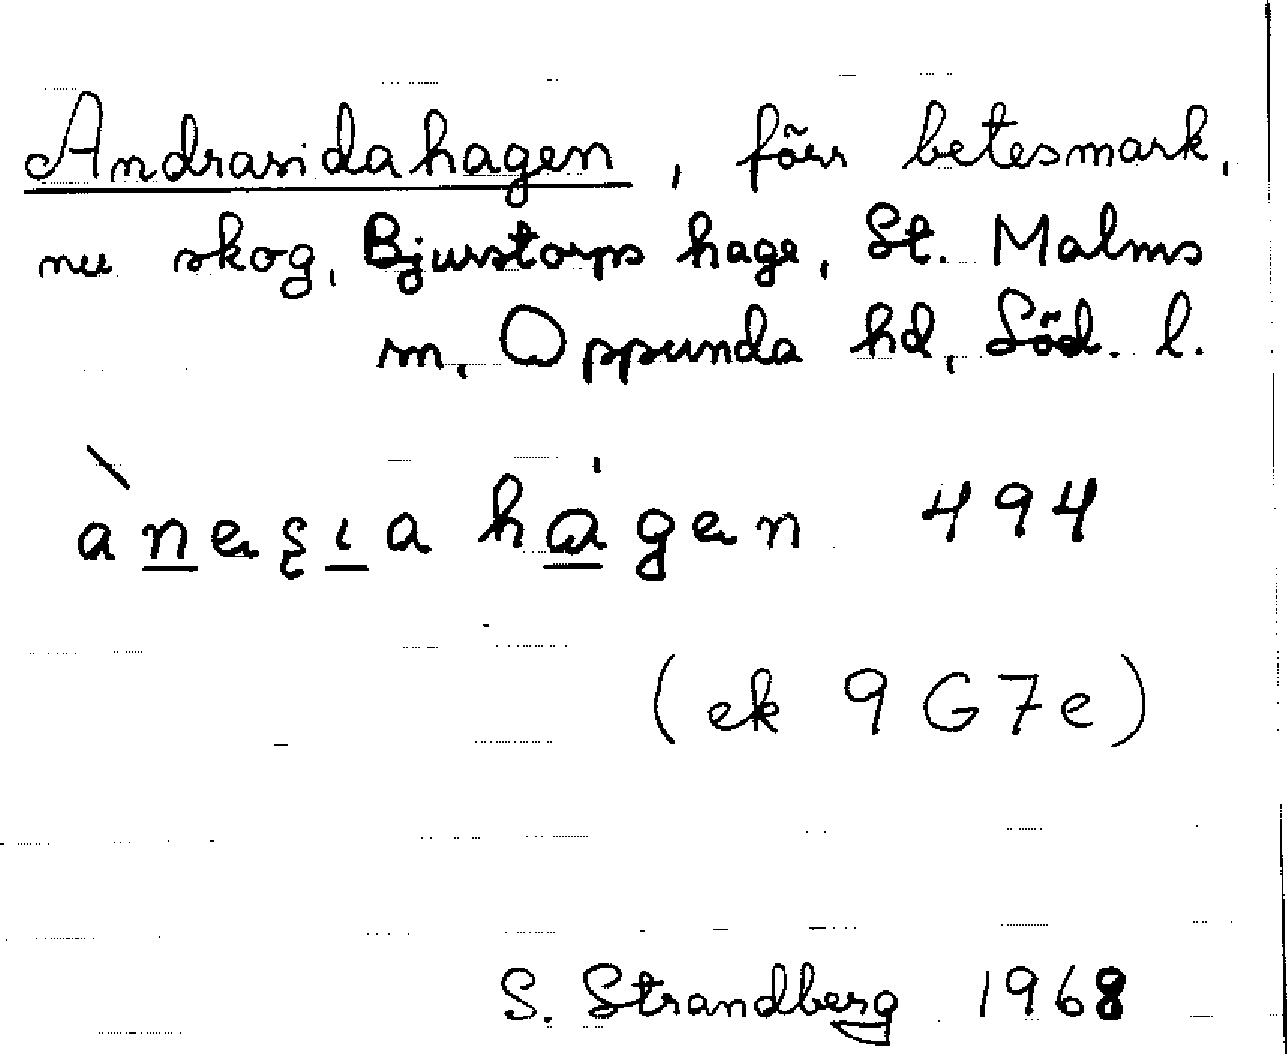 Andrasidahagen, förr betesmark,
nu skog, Bjurstorps hage, St. Malms
sn, Oppunda hd, Söd. l.
hagen 494
(ek 9G7e)
S. Strandberg 1968